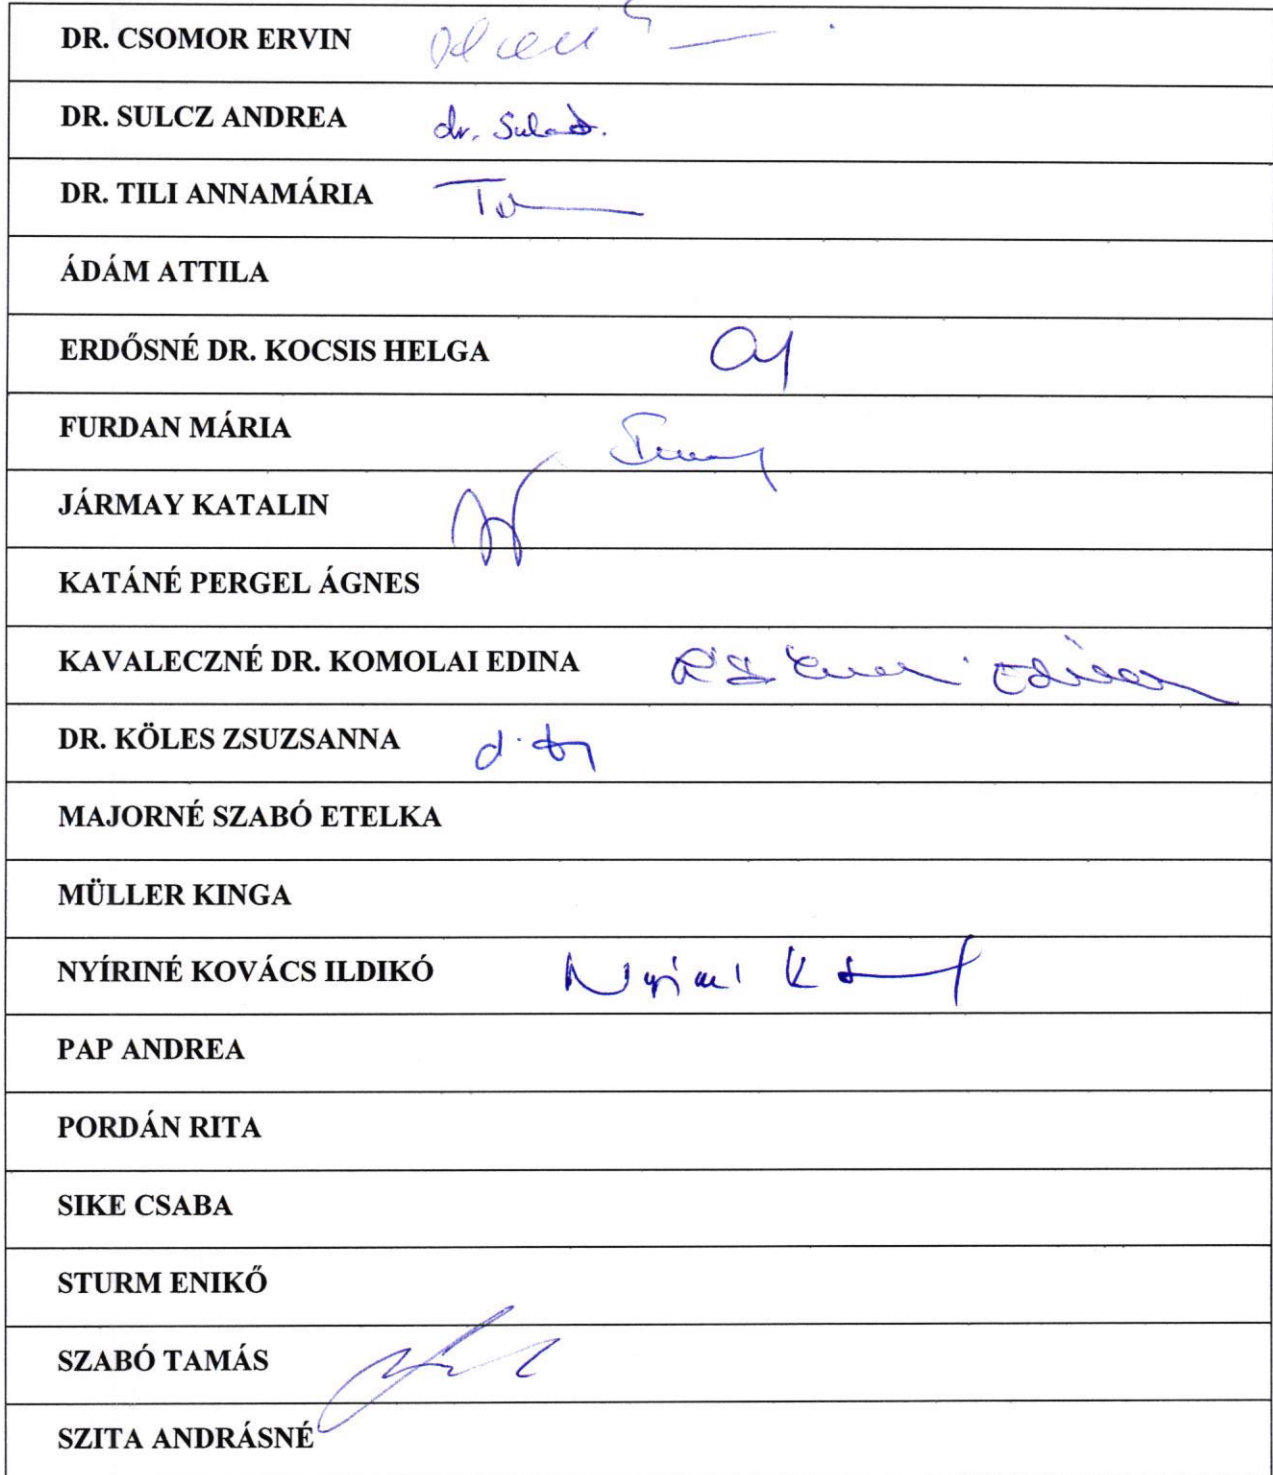 DR. CSOMOR ERVIN
DR. SULCZ ANDREA dr.
DR. TILI ANNAMÁRIA
ÁDÁM ATTILA
ERDŐSNÉ DR. KOCSIS HELGA
FURDAN MÁRIA
JÁRMAY KATALIN
KATÁNÉ PERGEL ÁGNES
KAVALECZNÉ DR. KOMOLAI EDINA
DR. KÖLES ZSUZSANNA
MAJORNÉ SZABÓ ETELKA
MÜLLER KINGA
NYÍRINÉ KOVÁCS ILDIKÓ
PAP ANDREA
PORDÁN RITA
SIKE CSABA
STURM ENIKŐ
SZABÓ TAMÁS
SZITA ANDRÁSNÉ